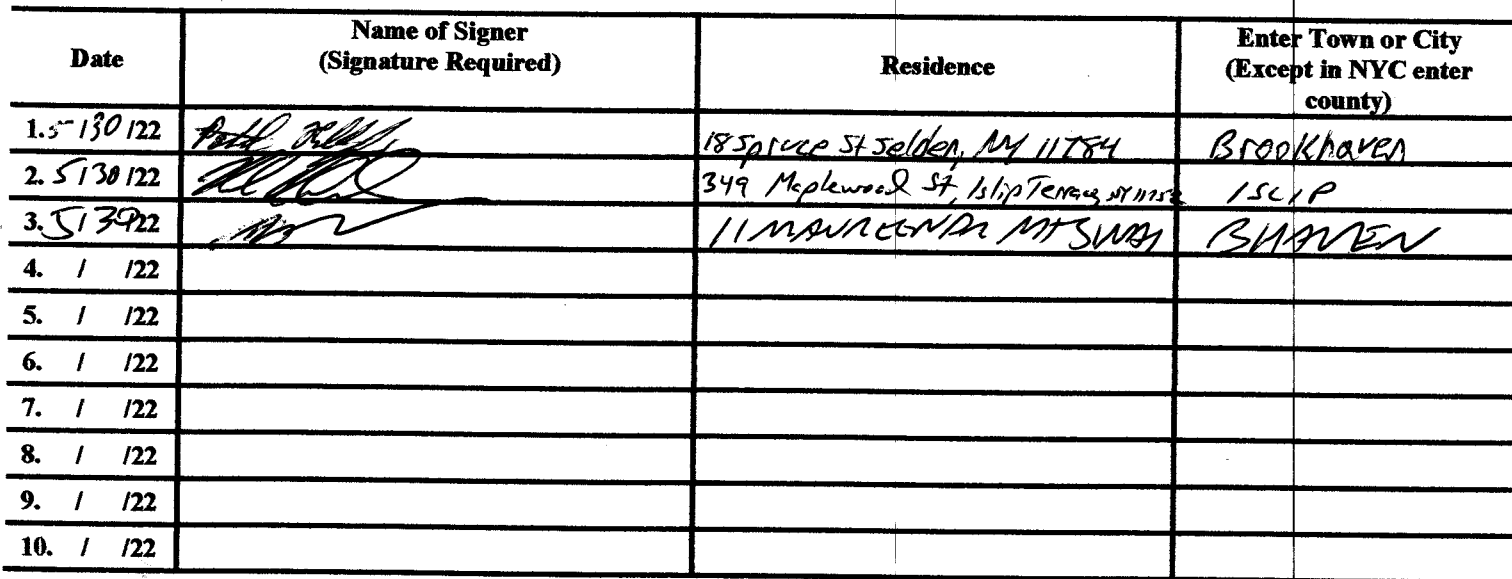 Date Name of Signer (Signature Required) Residence Enter Town or City (Except in NYC enter county)
1. 5/30/22 18 Spruce St Selden, NY 11784 Brookhaven
2. 5/30/22 349 Maplewood St, Islip Terrace, NY 11752 ISLIP
3. 5/30/22 11 MAUREEN DR MT SINAI BHAVEN
4. / /22
5. / /22
6. / /22
7. / /22
8. / /22
9. / /22
10. / /22